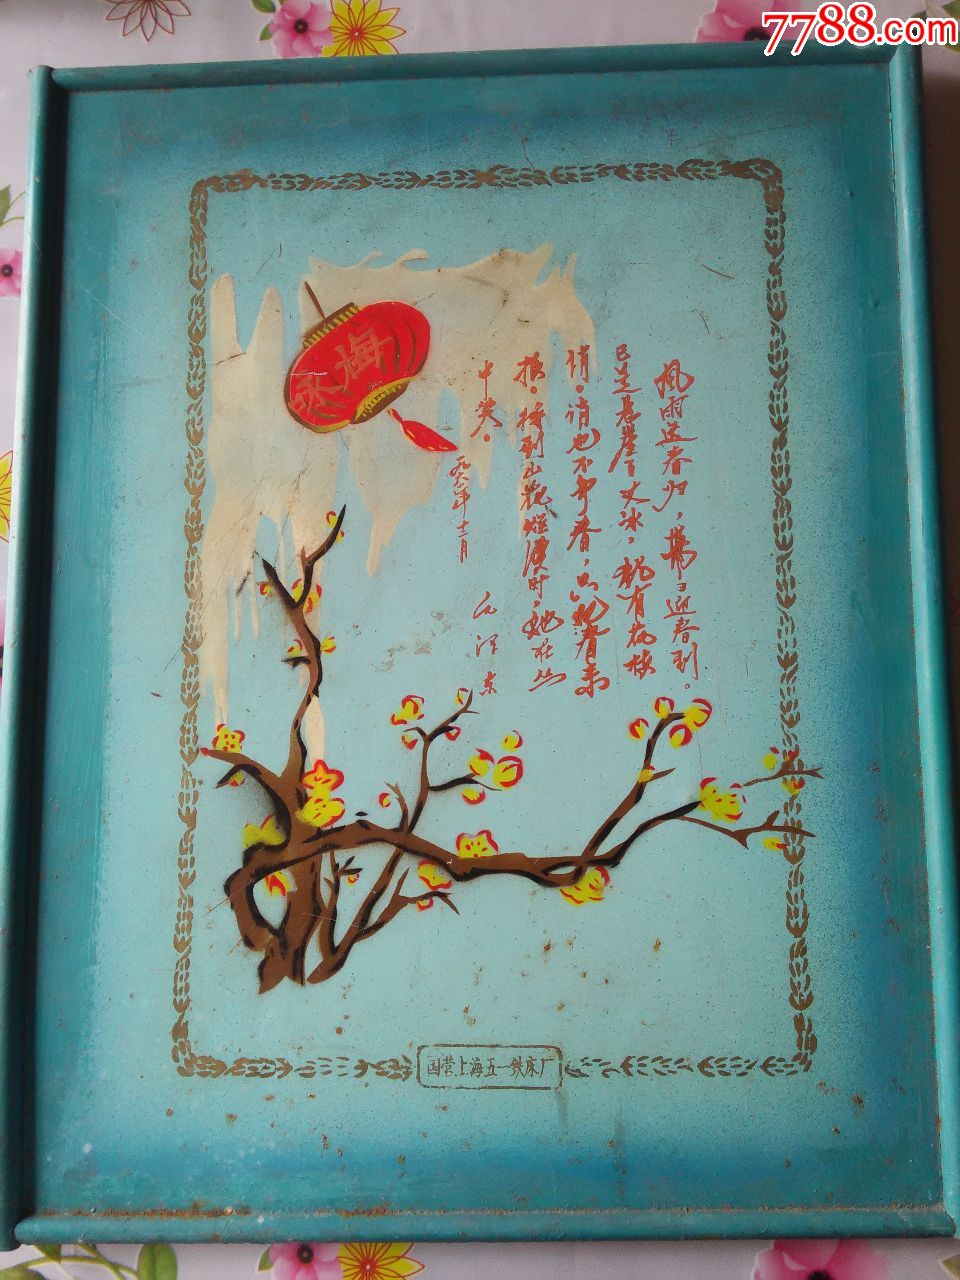 7788.com
风雨送春归，飞雪迎春到。
已是悬崖百丈冰，犹有花枝
俏。俏也不争春，只把春来
报。待到山花烂漫时，她在丛
中笑。
一九六一年十二月
毛泽东
国营上海五一铁床厂